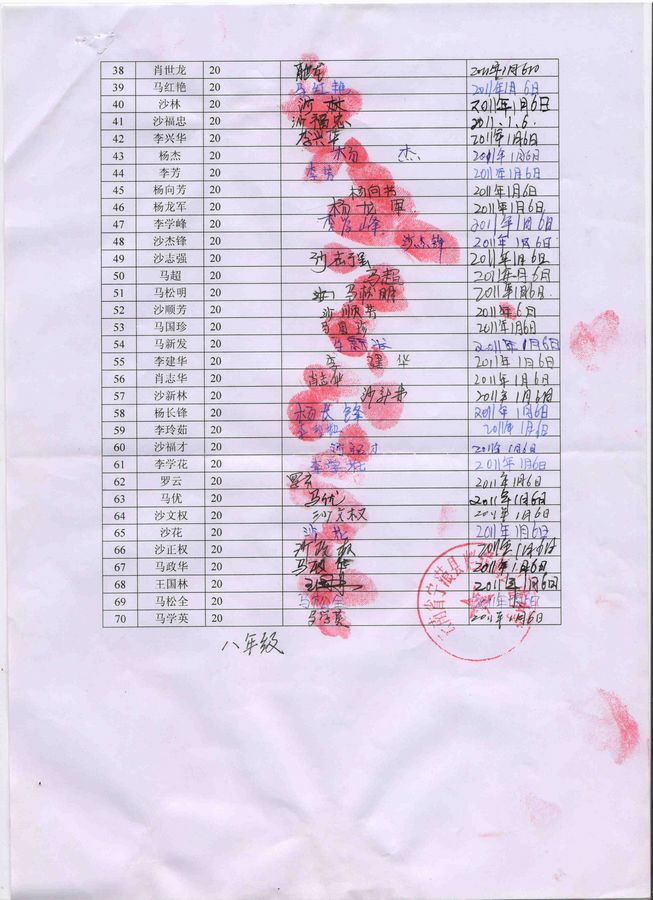 38 肖世龙 20 2011年1月6日
39 马红艳 20 马红艳 2011年1月6日
40 沙林 20 沙林 2011年1月6日
41 沙福忠 20 沙福忠 2011.1.6.
42 李兴华 20 李兴华 2011年1月6日
43 杨杰 20 杨杰 2011年1月6日
44 李芳 20 李芳 2011年1月6日
45 杨向芳 20 杨向芳 2011年1月6日
46 杨龙军 20 杨龙军 2011年1月6日
47 李学峰 20 李学峰 2011年1月6日
48 沙杰锋 20 沙杰锋 2011年1月6日
49 沙志强 20 沙志强 2011年1月6日
50 马超 20 马超 2011年1月6日
51 马松明 20 马松明 2011年1月6日.
52 沙顺芳 20 沙顺芳 2011年6日
53 马国珍 20 马国珍 2011年1月6日
54 马新发 20 2011年1月6日
55 李建华 20 李建华 2011年1月6日
56 肖志华 20 肖志华 2011年1月6日
57 沙新林 20 2011年1月6日
58 杨长锋 20 杨长锋 2011年1月6日
59 李玲茹 20 2011年1月6日
60 沙福才 20 沙福才 2011年1月6日
61 李学花 20 李学花 2011年1月6日
62 罗云 20 罗云 2011年1月6日
63 马优 20 马优 2011年1月6日
64 沙文权 20 沙文权 2011年1月6日
65 沙花 20 沙花 2011年1月6日
66 沙正权 20 沙政权 2011年1月6日
67 马政华 20 马政华 2011年1月6日
68 王国林 20 2011年1月6日
69 马松全 20 马松全
70 马学英 20 马学英 2011年1月6日
八年级